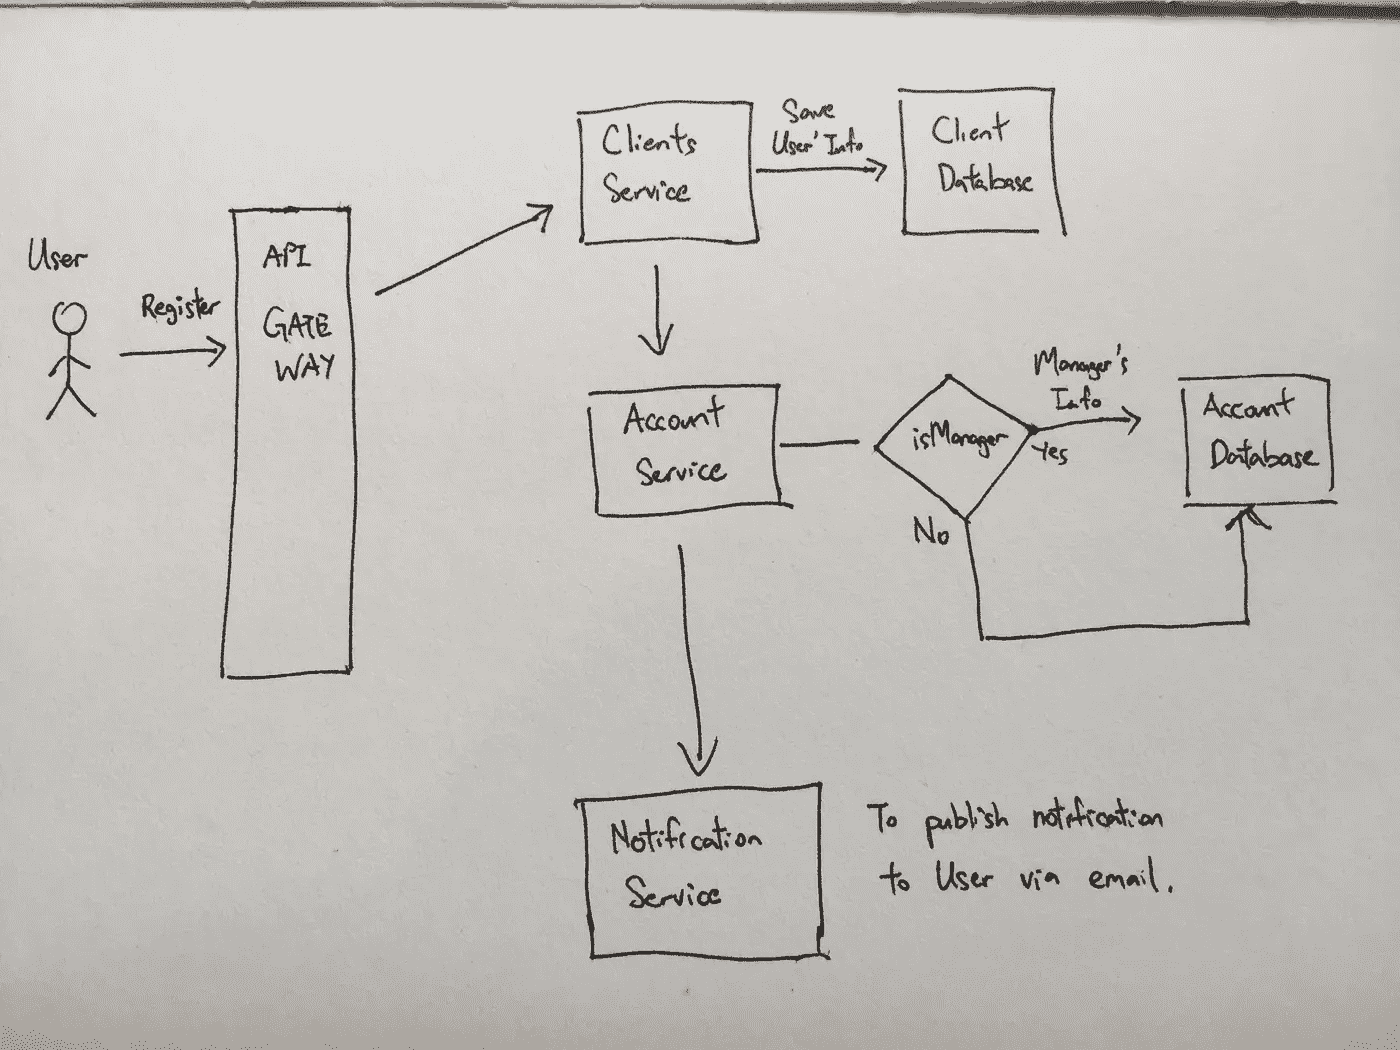 User
Register
API
GATE
WAY
Clients
Service
Save
User' Info
Client
Database
Account
Service
isManager
Manager's
Info
Yes
No
Account
Database
Notification
Service
To publish notification
to User via email.